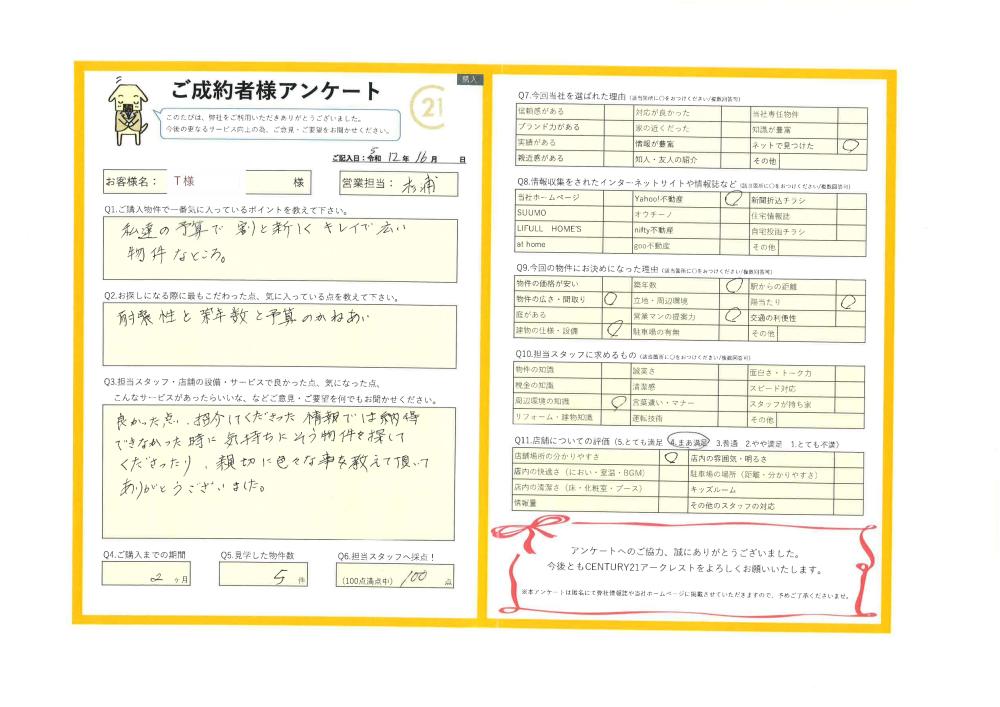 購入
ご成約者様アンケート
21
このたびは、弊社をご利用いただきありがとうございました。
今後の更なるサービス向上の為、ご意見・ご要望をお聞かせください。
ご記入日：令和 5 12 年 16 月 日
お客様名： T様 様
営業担当： 杉浦
Q1.ご購入物件で一番気に入っているポイントを教えて下さい。
私達の予算で 割と新しく キレイで広い
物件なところ。
Q2.お探しになる際に最もこだわった点、気に入っている点を教えて下さい。
耐震性と築年数と予算のかねあい
Q3.担当スタッフ・店舗の設備・サービスで良かった点、気になった点、
こんなサービスがあったらいいな、などご意見・ご要望を何でもお聞かせください。
良かった点、紹介してくださった情報では納得
できなかった時に気持ちにそう物件を探して
くださったり、親切に色々な事を教えて頂いて
ありがとうございました。
Q4.ご購入までの期間
2 ヶ月
Q5.見学した物件数
5 件
Q6.担当スタッフへ採点！
（100点満点中） 100 点
Q7.今回当社を選ばれた理由（該当箇所に○をおつけください/複数回答可）
信頼感がある 対応が良かった 当社専任物件
ブランド力がある 家の近くだった 知識が豊富
実績がある 情報が豊富 ネットで見つけた ○
親近感がある 知人・友人の紹介 その他
Q8.情報収集をされたインターネットサイトや情報誌など（該当箇所に○をおつけください/複数回答可）
当社ホームページ Yahoo!不動産 ○ 新聞折込チラシ
SUUMO オウチーノ 住宅情報誌
LIFULL HOME'S nifty不動産 自宅投函チラシ
at home goo不動産 その他
Q9.今回の物件にお決めになった理由（該当箇所に○をおつけください/複数回答可）
物件の価格が安い 築年数 ○ 駅からの距離
物件の広さ・間取り ○ 立地・周辺環境 陽当たり ○
庭がある 営業マンの提案力 ○ 交通の利便性
建物の仕様・設備 ○ 駐車場の有無 その他
Q10.担当スタッフに求めるもの（該当箇所に○をおつけください/複数回答可）
物件の知識 誠実さ 面白さ・トーク力
税金の知識 清潔感 スピード対応
周辺環境の知識 ○ 言葉遣い・マナー スタッフが持ち家
リフォーム・建物知識 運転技術 その他
Q11.店舗についての評価（5.とても満足 4.まあ満足 3.普通 2.やや満足 1.とても不満）
店舗場所の分かりやすさ ○ 店内の雰囲気・明るさ
店内の快適さ（におい・室温・BGM） 駐車場の場所（距離・分かりやすさ）
店内の清潔さ（床・化粧室・ブース） キッズルーム
情報量 その他のスタッフの対応
アンケートへのご協力、誠にありがとうございました。
今後ともCENTURY21アークレストをよろしくお願いいたします。
※本アンケートは匿名にて弊社情報誌や当社ホームページに掲載させていただきますので、予めご了承くださいませ。